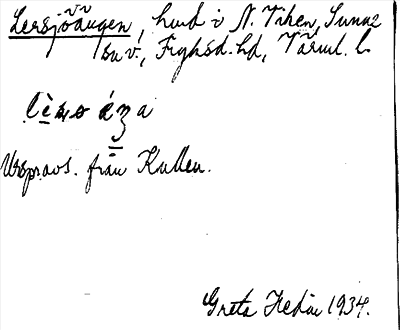 Lersjöaugen, hmd i N. Viken, Sunne
sn v., Fryksd. hd, Värml. l.
Urspravs. från Kullen.
Greta Hedin 1934.